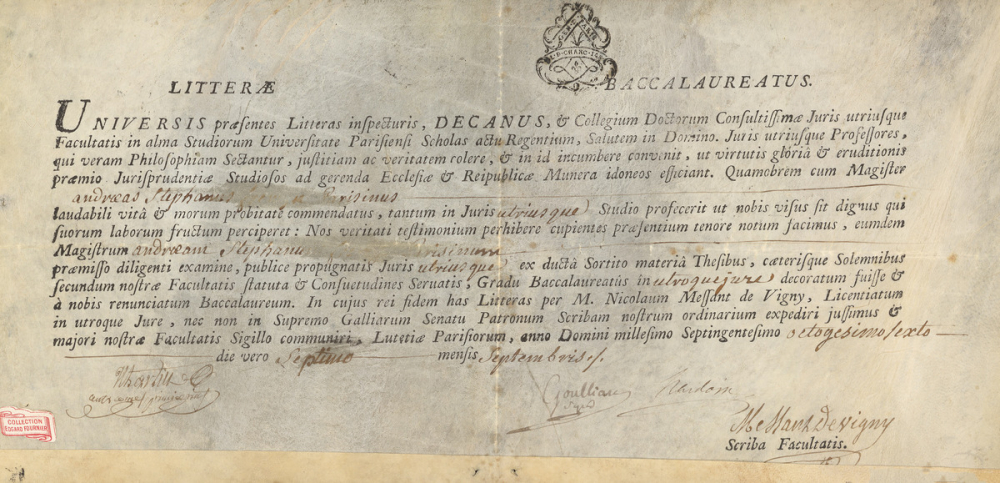 LITTERÆ BACCALAUREATUS.
UNIVERSIS præsentes Litteras inspecturis, DECANUS, & Collegium Doctorum Consultissimæ Juris utriusque
Facultatis in alma Studiorum Universitate Parisiensi Scholas actu Regentium, Salutem in Domino. Juris utriusque Professores,
qui veram Philosophiam Sectantur, justitiam ac veritatem colere, & in id incumbere convenit, ut virtutis gloriâ & eruditionis
præmio Jurisprudentiæ Studiosos ad gerenda Ecclesiæ & Reipublicæ Munera idoneos efficiant. Quamobrem cum Magister
andræas Stephanus Parisinus
laudabili vitâ & morum probitate commendatus, tantum in Juris utriusque Studio profecerit ut nobis visus sit dignus qui
suorum laborum fructum perciperet : Nos veritati testimonium perhibere cupientes præsentium tenore notum facimus, eumdem
Magistrum andræam Stephanum Parisinum
præmisso diligenti examine, publice propugnatis Juris utriusque ex ductâ Sortito materiâ Thesibus, cæterisque Solemnibus
secundum nostræ Facultatis statuta & Consuetudines Servatis, Gradu Baccalaureatûs in utroque jure decoratum fuisse &
à nobis renunciatum Baccalaureum. In cujus rei fidem has Litteras per M. Nicolaum Messant de Vigny, Licentiatum
in utroque Jure, nec non in Supremo Galliarum Senatu Patronum Scribam nostrum ordinarium expediri jussimus &
majori nostræ Facultatis Sigillo communiri, Lutetiæ Parisiorum, anno Domini millesimo Septingentesimo octogesimo sexto
die vero Septimo mensis Septembris
Goulliart Hardoin
Messant De vigny
Scriba Facultatis.
COLLECTION
EDGARD FOURNIER